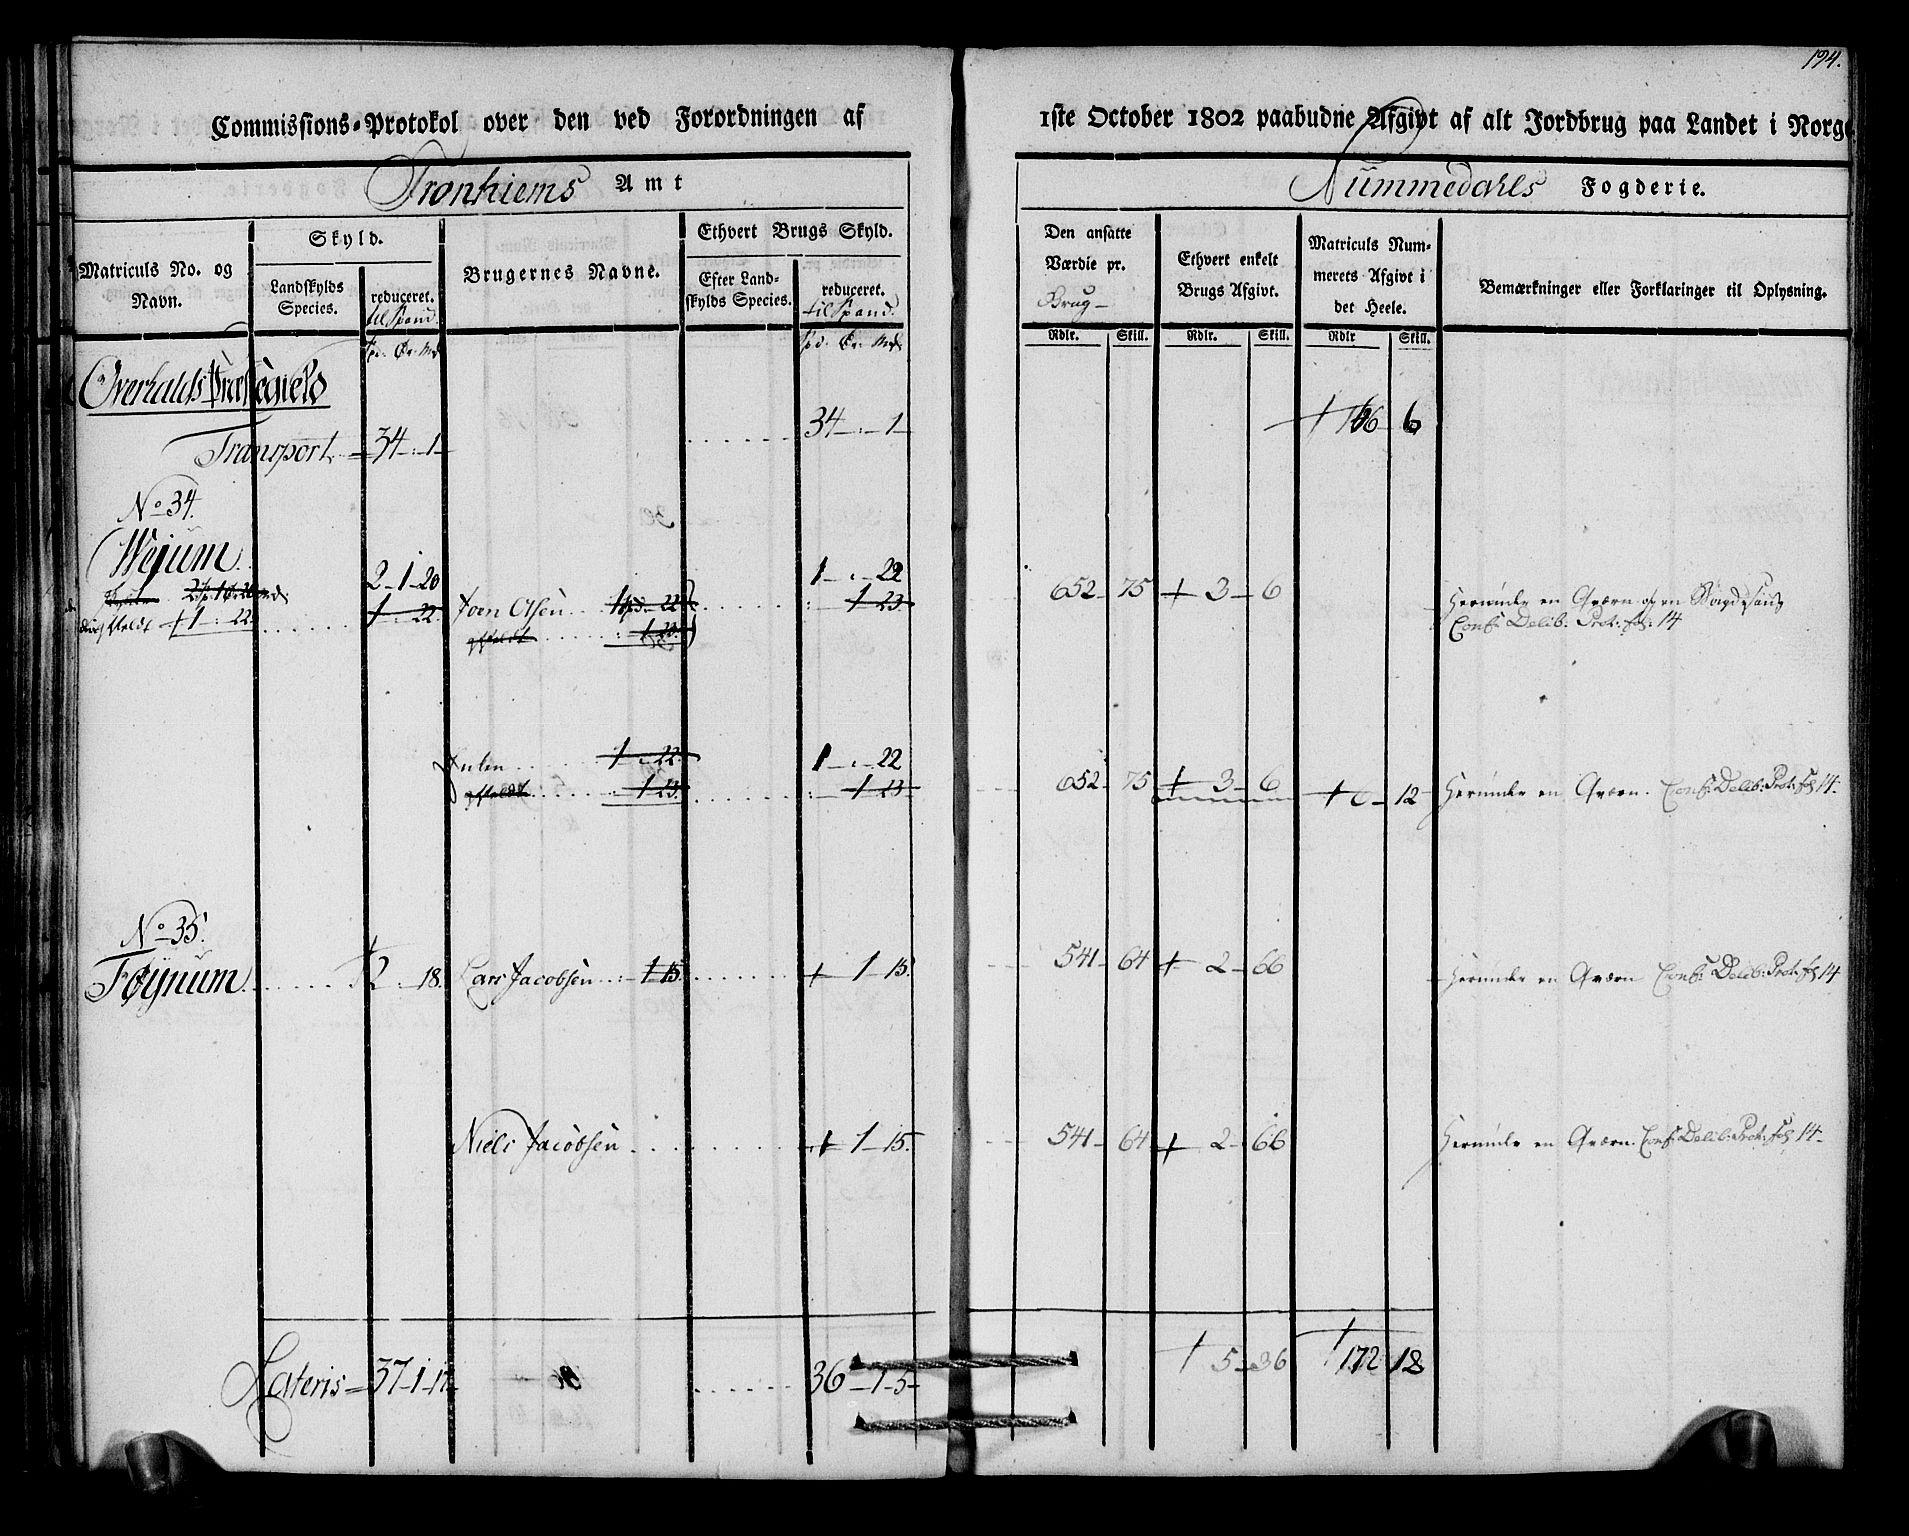 194.
Commissions-Protokol over den ved Forordningen af 1ste October 1802 paabudne Afgivt af alt Jordbrug paa Landet i Norge
Tronhiems Amt
Nummedahls Fogderie.
Matriculs No. og Navn.
Skyld.
Landskylds Species.
reduceret. til Spand.
Brugernes Navne.
Ethvert Brugs Skyld.
Efter Landskylds Species.
reduceret. til Spand.
Den ansatte Værdie pr. Brug
Ethvert enkelt Brugs Afgivt.
Matriculs Nummerets Afgivt i det Heele.
Bemærkninger eller Forklaringer til Oplysning.
Rdlr. Skill. Rdlr. Skill. Rdlr Skill.
Overhalds Præstegield
Transport 34 - : - 1 34 - : - 1 166 6
No 34.
Wejum
2 - 1 - 20 1 - : - 22
1 - 22 Joen Olsen 1 - 22 1 - 23 652 - 75 3 - 6 Herunder en Qværn og en Bøigdesaug
1 - 23 Conf: Delib: Prot: fol: 14
1 - 22 1 - : - 22
1 - 23 1 - 23 652 75 3 - 6 6 - 12 Herunder en Qværn. Conf: Delib: Prot: fol 14
No 35.
Føÿnum 2 . 18. Lars Jacobsen 1 15 1 - 15. 541 - 64 2 - 66 Herunder en Qværn Conf: Delib: Prot: fol 14
Niels Jacobsen 1 - 15. 541 - 64 2 - 66 Herunder en Qværn. Conf: Delib: Prot: fol 14
Lateris 37 - 1 - 17 36 - 1 - 5 5 - 36 172 18